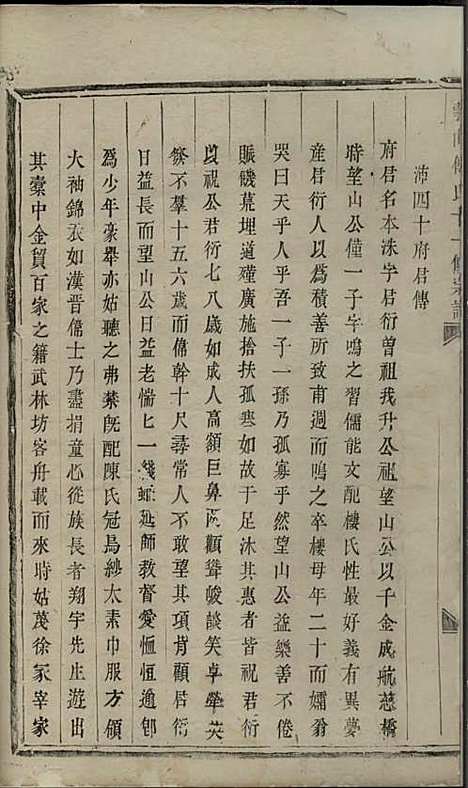 沛四十府君傳
府君名本洙字君衍曾祖我升公祖望山公以千金成航慈橋
時望山公僅一子字鳴之習儒能文配樓氏性最好義有異夢
産君衍人以為積善所致甫週而鳴之卒樓母年二十而孀翁
哭曰天乎人乎吾一子一孫乃孤寡乎然望山公益樂善不倦
賑饑荒埋道殣廣施捨扶孤寒如故于足沐其惠者皆祝君衍
以祝公君衍七八歲如成人高額巨鼻兩顴聳峻談笑卓犖英
發不羣十五六歲而偹幹十尺尋常人不敢望其項背顧君衍
日益長而望山公日益老惴匕一綫延師教督愛恤恒通郵
為少年豪舉亦姑聽之弗禁旣配陳氏冠烏紗太素巾服方領
大袖錦衣如漢晋儒士乃盡捐童心從族長者翔宇先生遊出
其槖中金貿百家之籍武林坊客舟載而來時姑蔑徐冢宰家